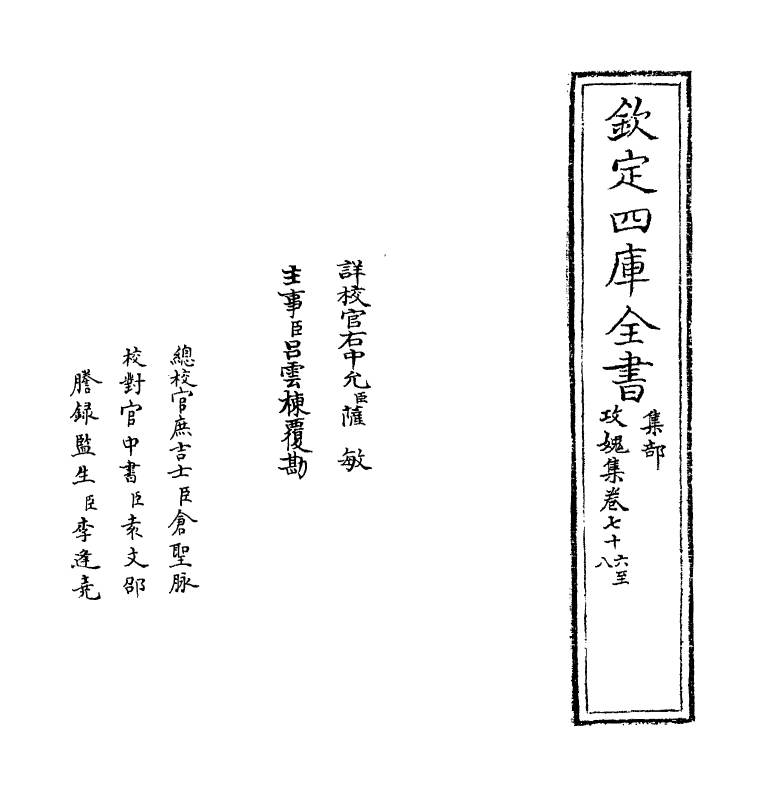 欽定四庫全書
集部
攻媿集卷七十六至
八
詳校官右中允臣薩敏
主事臣呂雲棟覆勘
總校官庶吉士臣倉聖脉
校對官中書臣袁文邵
謄録監生臣李逢堯